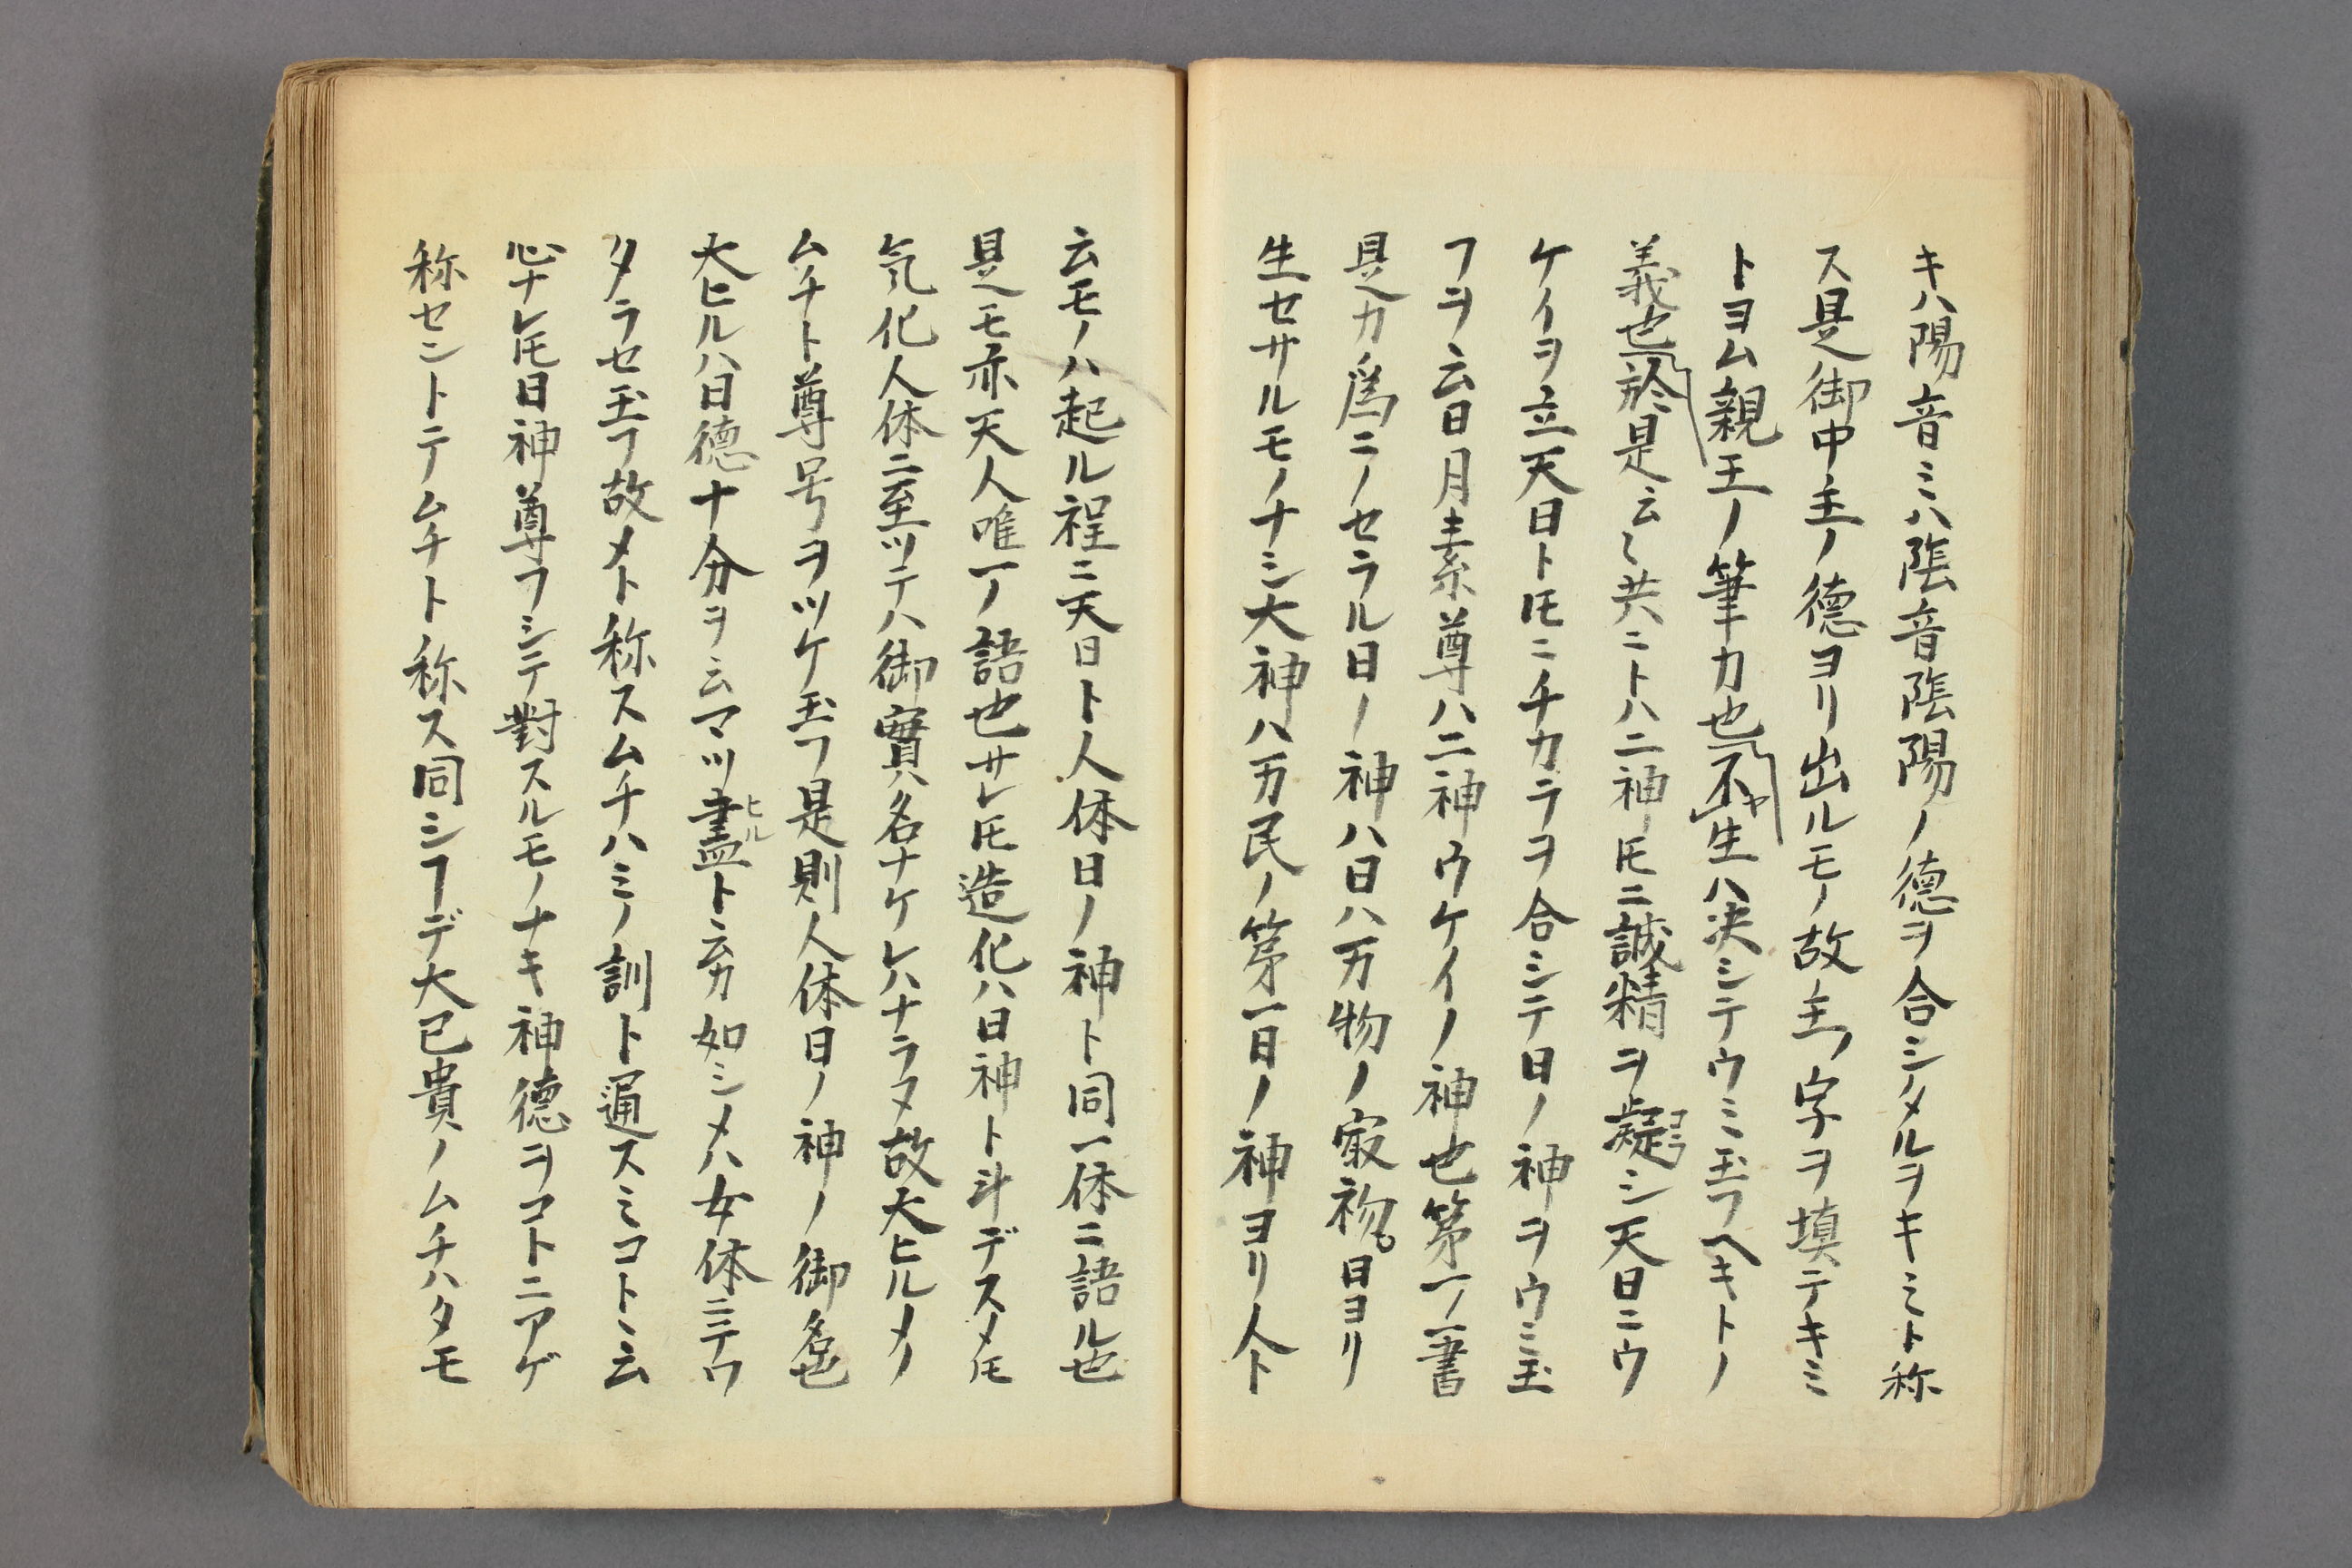 キハ陽音ミハ陰音陰陽ノ德ヲ合シタルヲキミト称
ス是御中主ノ德ヨリ出ルモノ故主ノ字ヲ填テキミ
トヨム親王ノ筆力也不ヤ生ハ決シテウミ玉フヘキトノ
義也於是云〻共ニトハ二神𪜈ニ誠精ヲ凝コラシ天日ニウ
ケイヲ立天日ト𪜈ニチカラヲ合シテ日ノ神ヲウミ玉
フヲ云日月素尊ハ二神ウケイノ神也第一ノ一書
是カ為ニノセラル日ノ神ハ日ハ万物ノ最初日ヨリ
生セサルモノナシ大神ハ万民ノ第一日ノ神ヨリ人ト
云モノハ起ル程ニ天日ト人体日ノ神ト同一体ニ語ル也
是モ亦天人唯一ノ語也サレ𪜈造化ハ日神ト斗デスメ𪜈
気化人体ニ至ツテハ御實名ナケレハナラヌ故大ヒルメノ
ムチト尊号ヲツケ玉フ是則人体日ノ神ノ御名也
大ヒルハ日德十分ヲ云マツ晝ヒルト云カ如シメハ女体ニテワ
タラセ玉フ故メト称スムチハミノ訓ト通スミコトヽ云
心ナレ𪜈日神尊フシテ對スルモノナキ神德ヲコトニアゲ
称セントテムチト称ス同シヿデ大已貴ノムチハタモ